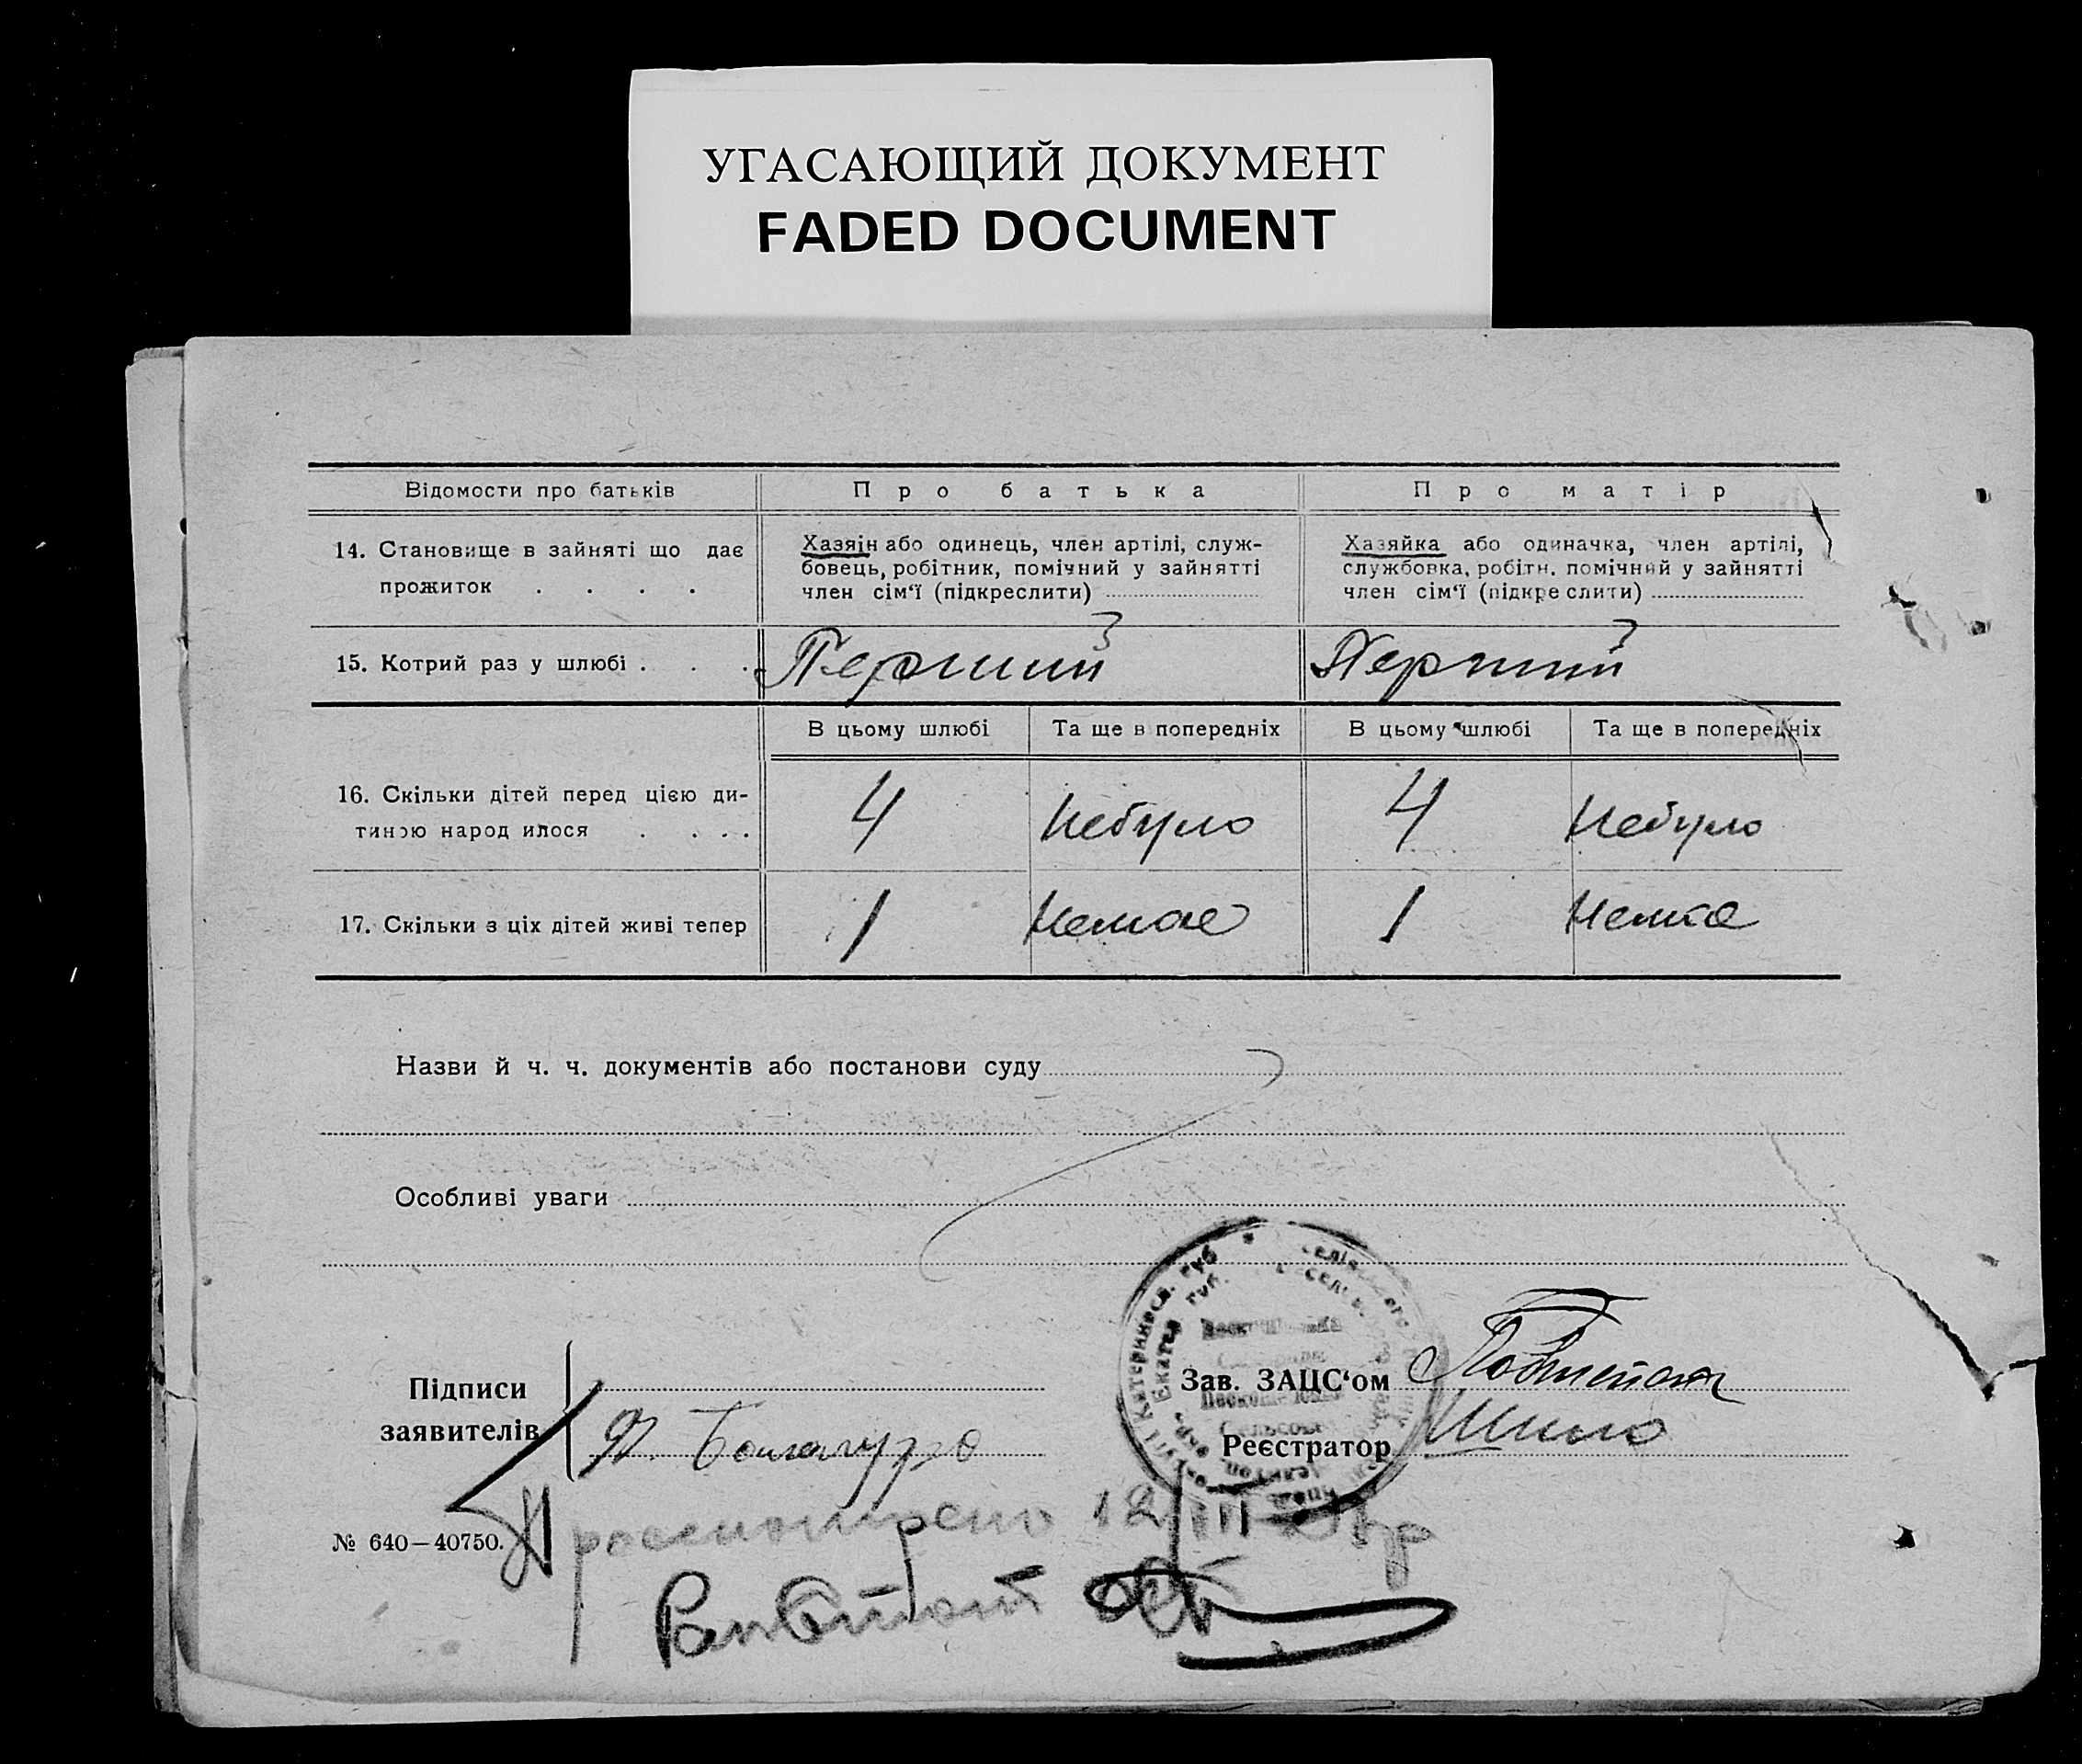 УГАСАЮЩИЙ ДОКУМЕНТ
FADED DOCUMENT
Відомости про батьків
Про батька
Про матір
14. Становище в зайняті що дає
прожиток . . . .
Хазяїн або одинець, член артілі, служ-
бовець, робітник, помічний у зайнятті
член сім‘ї (підкреслити)
Хазяйка або одиначка, член артілі,
службовка, робітн. помічний у зайнятті
член сім‘ї (підкре слити)
15. Котрий раз у шлюбі . . .
Перший
Перший
В цьому шлюбі
Та ще в попередніх
В цьому шлюбі
Та ще в попередніх
16. Скільки дітей перед цією ди-
тиною народ илося . . . .
4
Небуло
4
Небуло
17. Скільки з ціх дітей живі тепер
1
Немає
1
Немає
Назви й ч. ч. документів або постанови суду
Особливі уваги
Підписи
заявителів
Зав. ЗАЦС‘ом
Реєстратор
Шило
Катериносл. губ
Екатер губ.
№ 640—40750.
Просмотрено 12/III